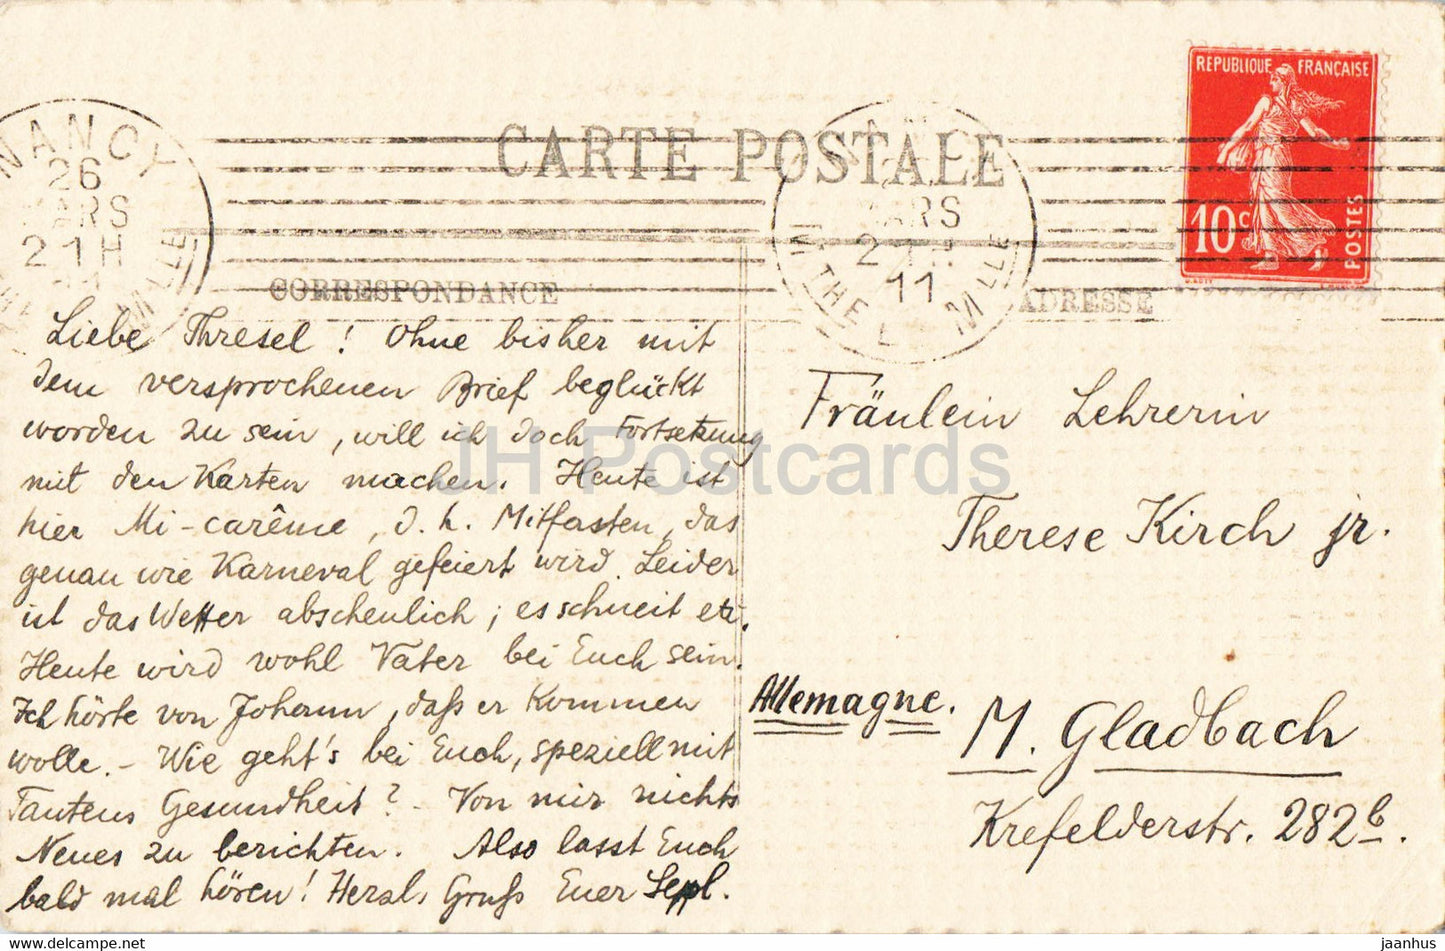 CARTE POSTALE
REPUBLIQUE FRANÇAISE
10c
POSTES
NANCY
26
MARS
21H
MARS
21H
11
MTHE ET MLLE
CORRESPONDANCE
ADRESSE
Liebe Thresel! Ohne bisher mit
dem versprochenen Brief beglückt
worden zu sein, will ich doch Fortsetzung
mit den Karten machen. Heute ist
hier Mi-carême, d. h. Mitfasten, das
genau wie Karneval gefeiert wird. Leider
ist das Wetter abscheulich; es schneit etc.
Heute wird wohl Vater bei Euch sein.
Ich hörte von Johann, daß er kommen
wolle. - Wie geht's bei Euch, speziell mit
Tantens Gesundheit? - Von mir nichts
Neues zu berichten. Also lasst Euch
bald mal hören! Herzl. Gruß Euer Seppl.
Fräulein Lehrerin
Therese Kirch jr.
Allemagne.
M. Gladbach
Krefelderstr. 282b.
JH Postcards
www.delcampe.net
jaanhus